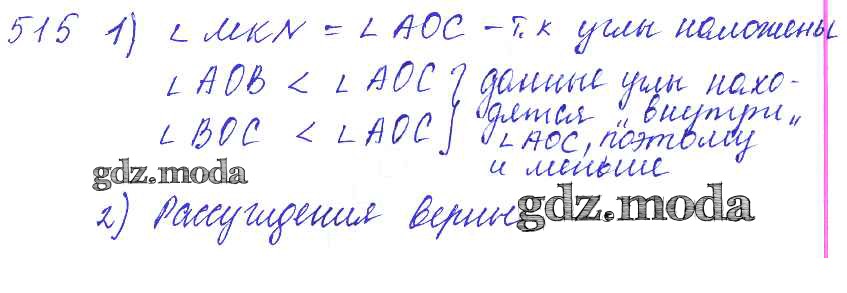 515 1) ∠MKN = ∠AOC – т.к углы наложены
∠AOB < ∠AOC } данные углы нахо-
∠BOC < ∠AOC } дятся „внутри„
∠AOC, поэтому
и меньше
gdz.moda
2) Рассуждения верны
gdz.moda